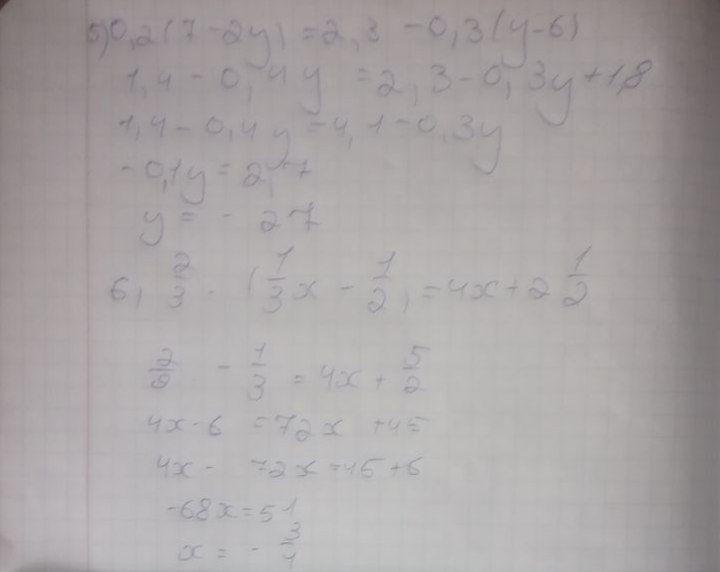 5) 0,2(7-2y) = 2,3 - 0,3(y-6)
1,4 - 0,4y = 2,3 - 0,3y + 1,8
1,4 - 0,4y = 4,1 - 0,3y
-0,1y = 2,7
y = - 27
6) 2/3 · (1/3x - 1/2) = 4x + 2 1/2
2/9 - 1/3 = 4x + 5/2
4x - 6 = 72x + 45
4x - 72x = 45 + 6
-68x = 51
x = - 3/4